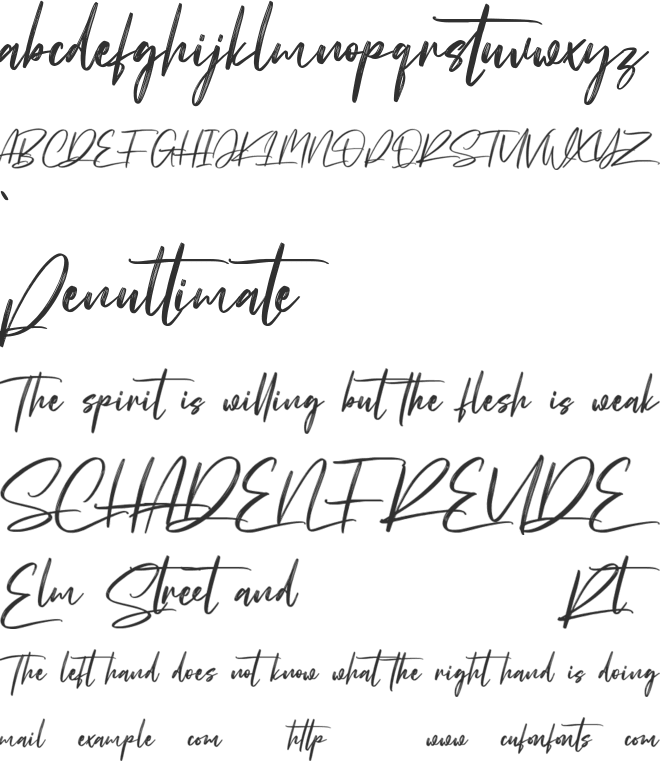 abcdefghijklmnopqrstuvwxyz
ABCDEFGHIJKLMNOPQRSTUVWXYZ
`
Penultimate
The spirit is willing but the flesh is weak
SCHADENFREUDE
Elm Street and Rt
The left hand does not know what the right hand is doing
mail example com http www cufonfonts com